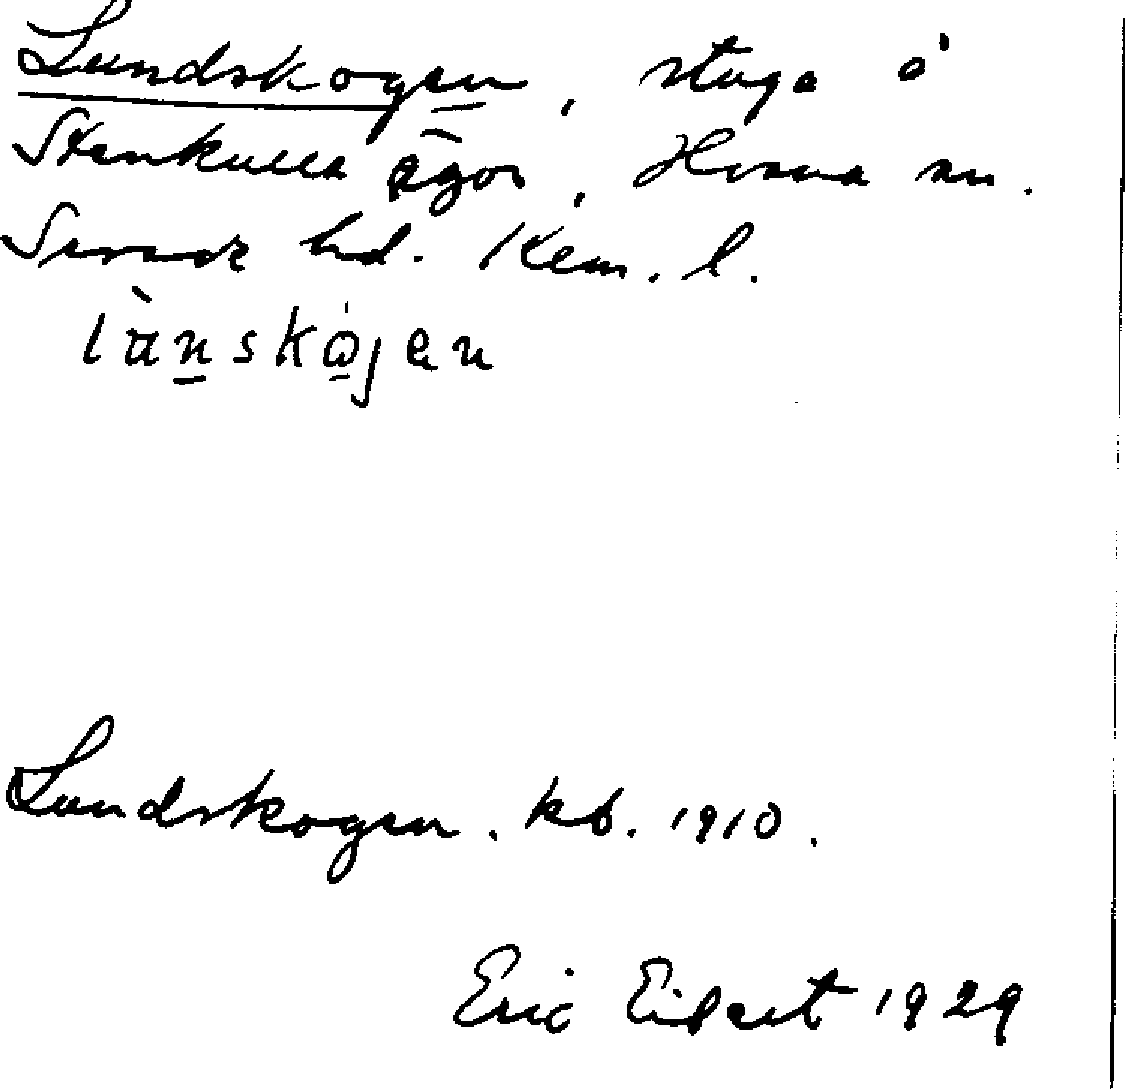 Lundskogen, stuga å
Stenkulla ägor, Hvena sn.
Sevede hd. Kalm. l.
lànskójen
Lundskogen. kb. 1910.
Eric 1929